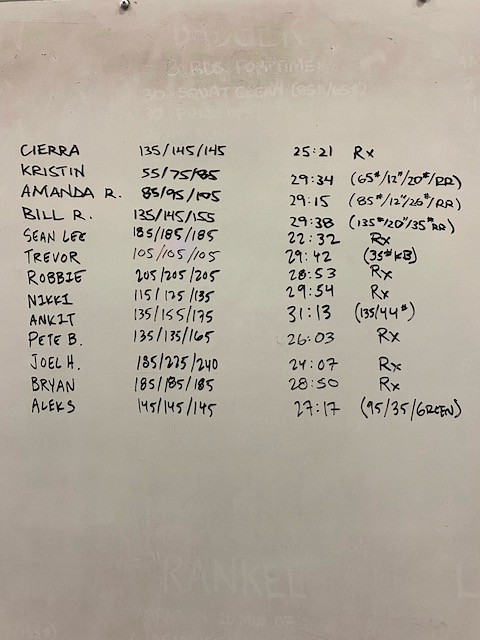 CIERRA 135/145/145 25:21 Rx
KRISTIN 55/75/85 29:34 (65#/12"/20#/RR)
AMANDA R. 85/95/105 29:15 (85#/12"/26#/RR)
BILL R. 135/145/155 29:38 (135#/20"/35#RR)
SEAN LEE 185/185/185 22:32 Rx
TREVOR 105/105/105 29:42 (35# KB)
ROBBIE 205/205/205 28:53 Rx
NIKKI 115/125/135 29:54 Rx
ANKIT 135/155/175 31:13 (135/44#)
PETE B. 135/135/165 26:03 Rx
JOEL H. 185/225/240 24:07 Rx
BRYAN 185/185/185 28:50 Rx
ALEKS 145/145/145 27:17 (95/35/GREEN)
RANKEL